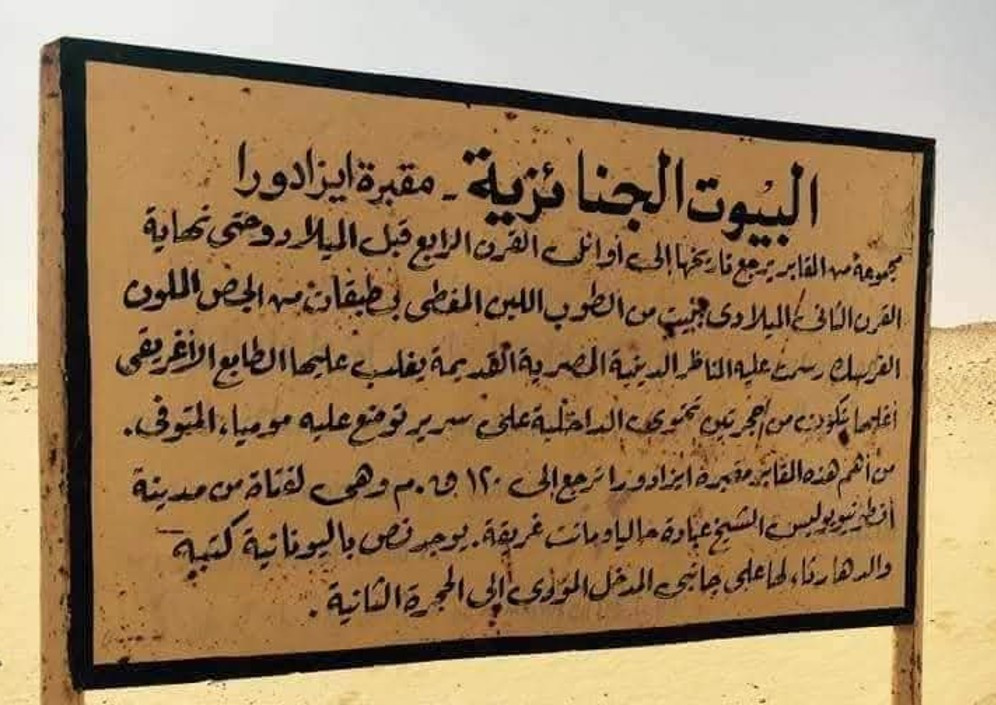 البيوت الجنائزية - مقبرة ايزادورا
مجموعة من المقابر يرجع تاريخها إلى أوائل القرن الرابع قبل الميلاد وحتى نهاية
القرن الثانى الميلادى بنيت من الطوب اللبن المغطى بطبقات من الجص الملون
الفريسك رسمت عليه المناظر الدينية المصرية القديمة يغلب عليها الطابع الأغريقى
أغلبها يتكون من حجرتين تحتوى الداخلية على سرير توضع عليه مومياء المتوفى .
من أهم هذه المقابر مقبرة ايزادورا ترجع إلى ١٢٠ ق . م وهى لفتاة من مدينة
الشيخ عبادة حاليا وماتت غريقة . يوجد نص باليونانية كتبه
والدها رثاء لها على جانبى المدخل المؤدى إلى الحجرة الثانية .